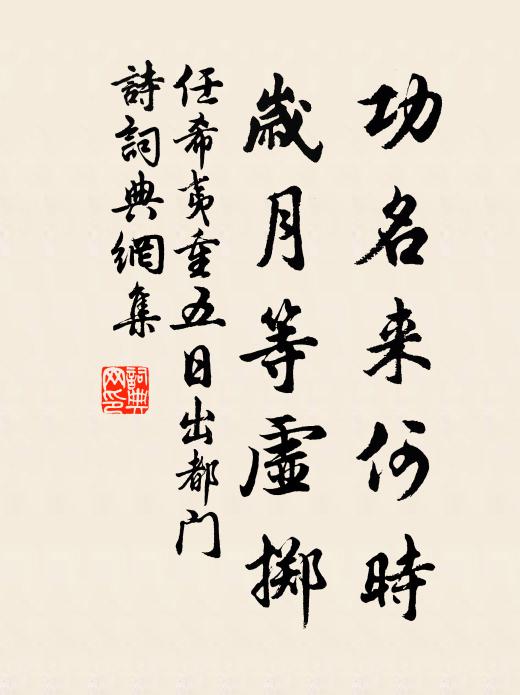 功名来何時
歲月等虛擲
任希夷重五日出都门
詩詞典網集
詞典网印